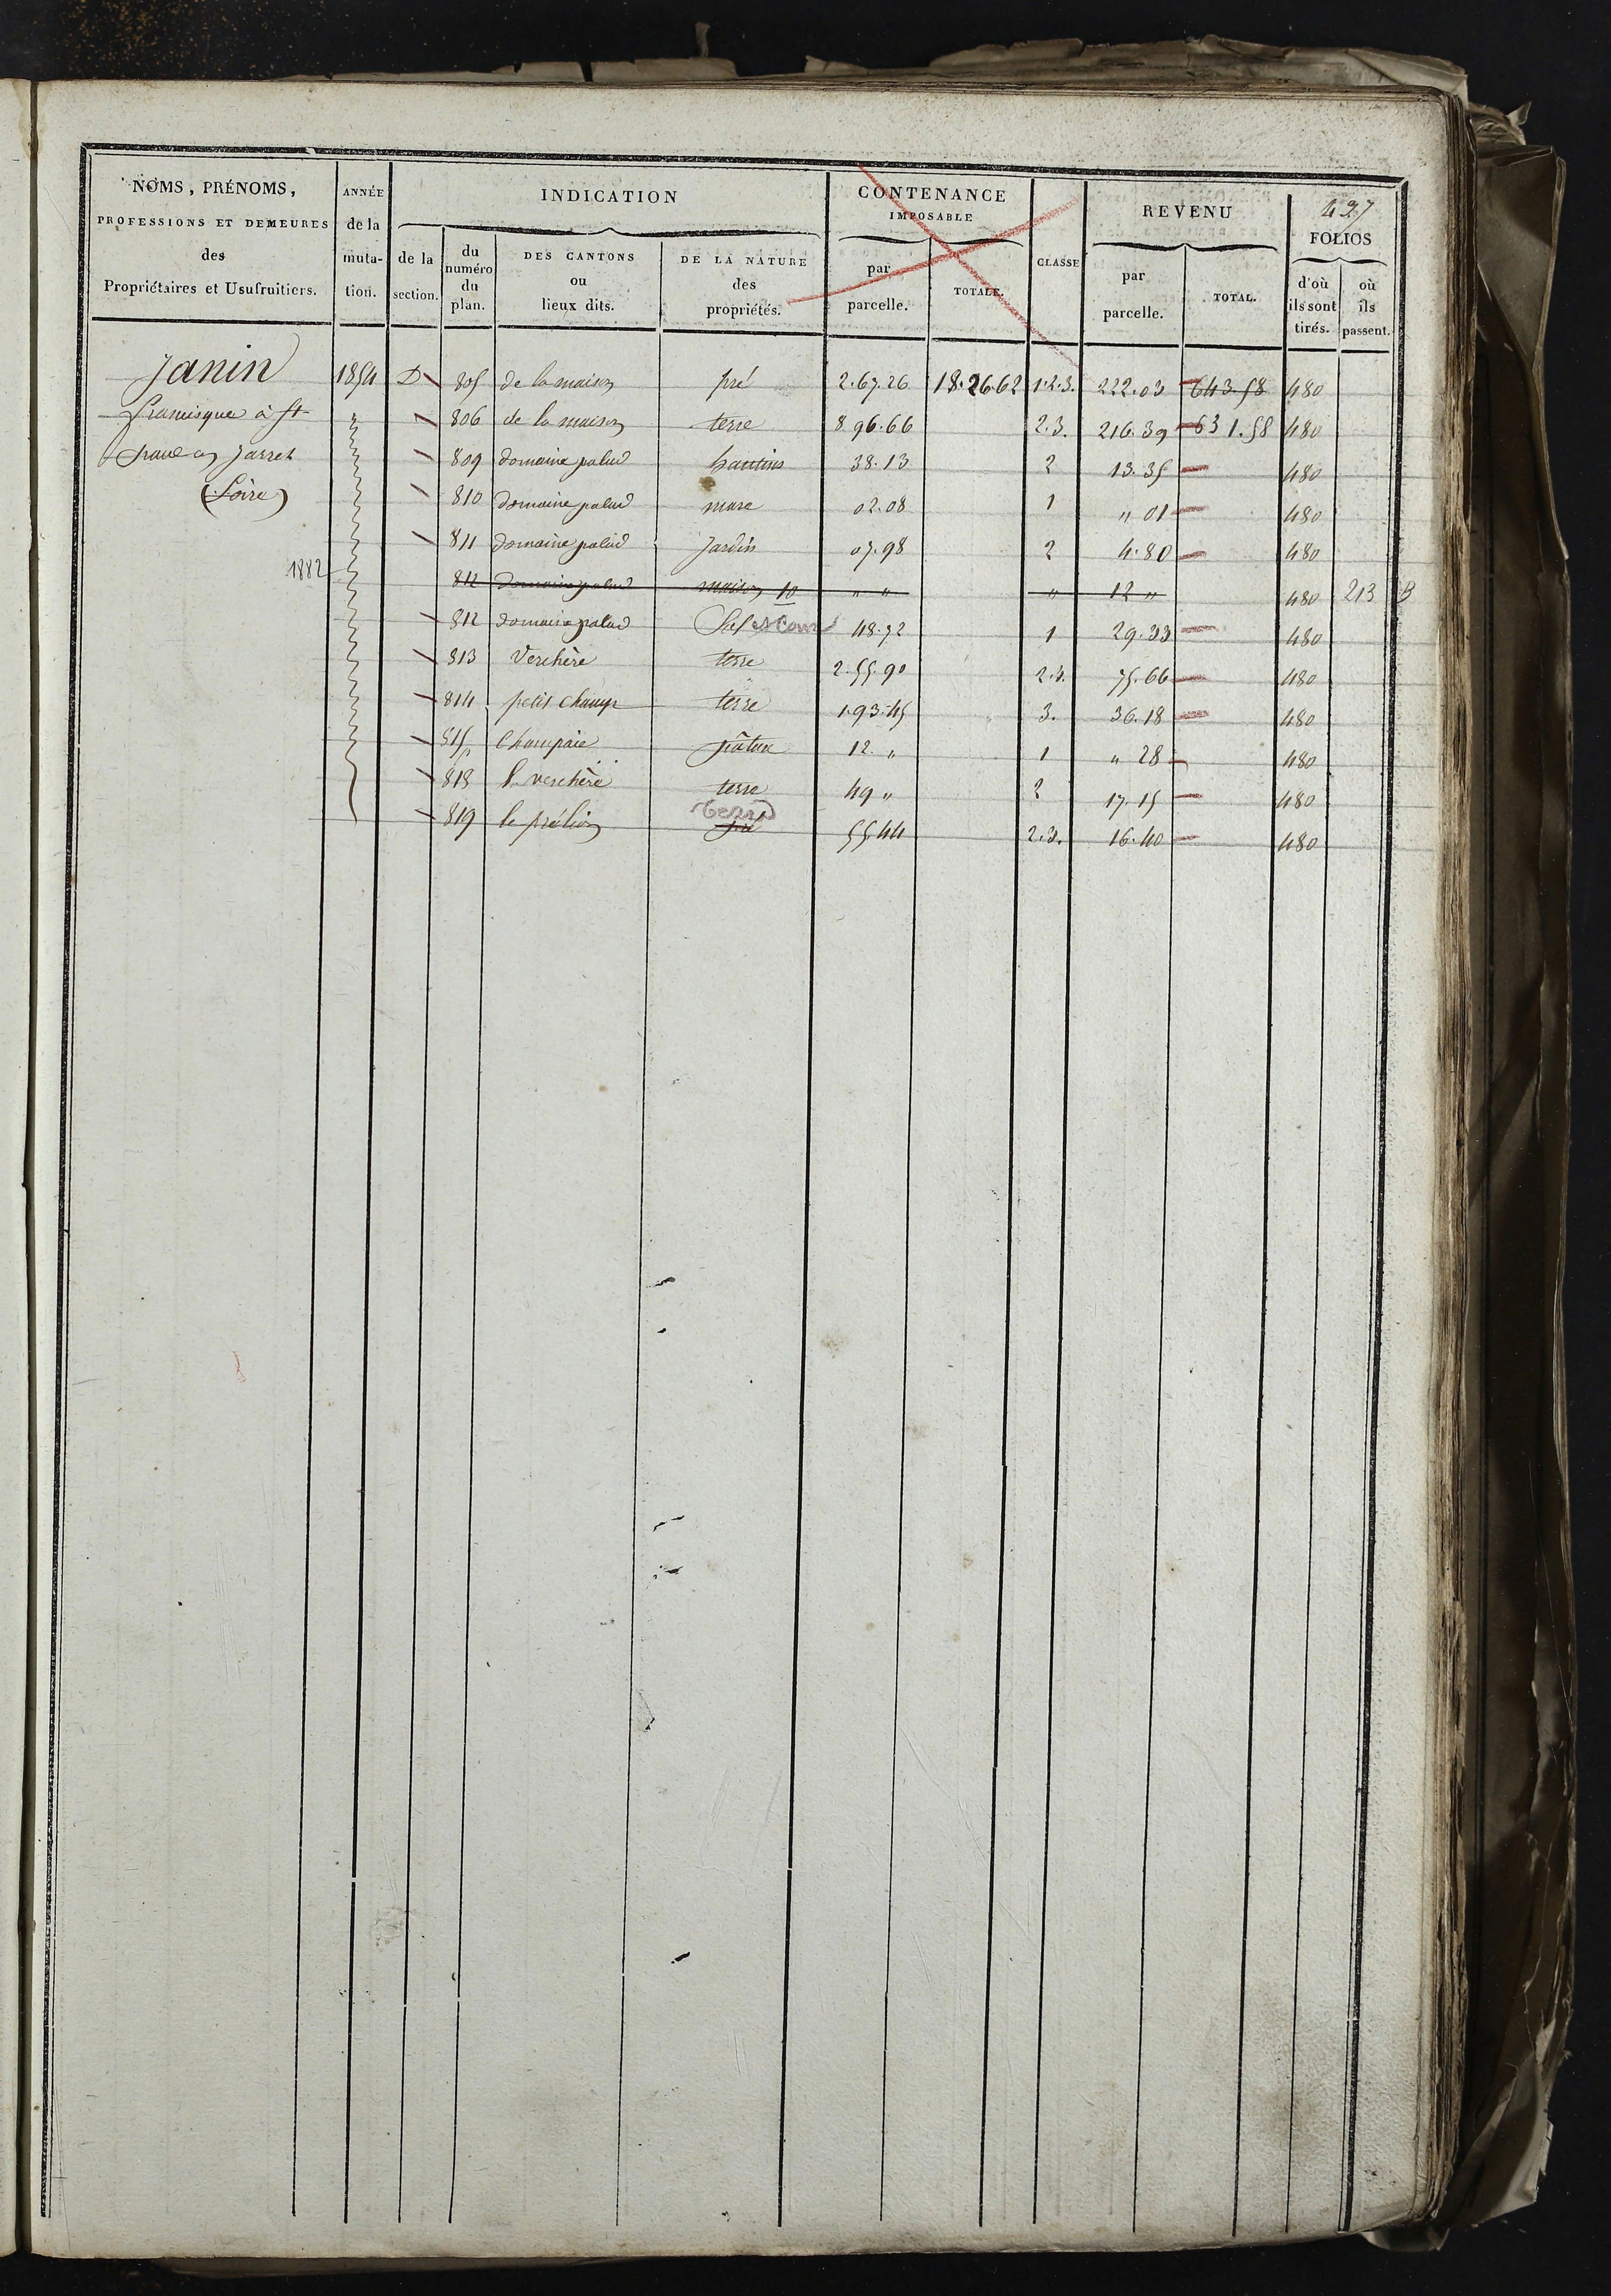 427
NOMS, PRÉNOMS, PROFESSIONS ET DEMEURES des Propriétaires et Usufruitiers. | ANNÉE de la muta-tion. | INDICATION de la section. | du numéro du plan. | DES CANTONS ou lieux dits. | DE LA NATURE des propriétés. | CONTENANCE IMPOSABLE par parcelle. | TOTALE. | CLASSE | REVENU par parcelle. | TOTAL. | FOLIOS d'où ils sont tirés. | où ils passent.
Janin | 1854 | D | 805 | de la maison | pré | 2.67.26 | 18.26.62 | 1.2.3. | 222.03 | 643.58 | 480
francisque à St | 806 | de la maison | terre | 8 96.66 | 2.3. | 216.39 | 631.58 | 480
Jarret | 809 | domaine palud | hautins | 38.13 | 2 | 13.35 | 480
(Loire) | 810 | domaine palud | mare | 02.08 | 1 | " 01 | 480
811 | domaine palud | Jardin | 07.98 | 2 | 4.80 | 480
1882 | 812 | domaine palud | maison 10 | " " | " | 12 " | 480 | 213 B
812 | domaine palud | Sol et Cour | 48.72 | 1 | 29.23 | 480
813 | Verchère | terre | 2.55.90 | 2.3. | 75.66 | 480
814 | petit Champ | terre | 1.93.45 | 3. | 36.18 | 480
815 | Champaie | pâture | 12. " | 1 | " 28 | 480
818 | verchère | terre | 49 " | 2 | 17.15 | 480
terre
819 | le prélion | pré | 55.44 | 2.3. | 16.40 | 480